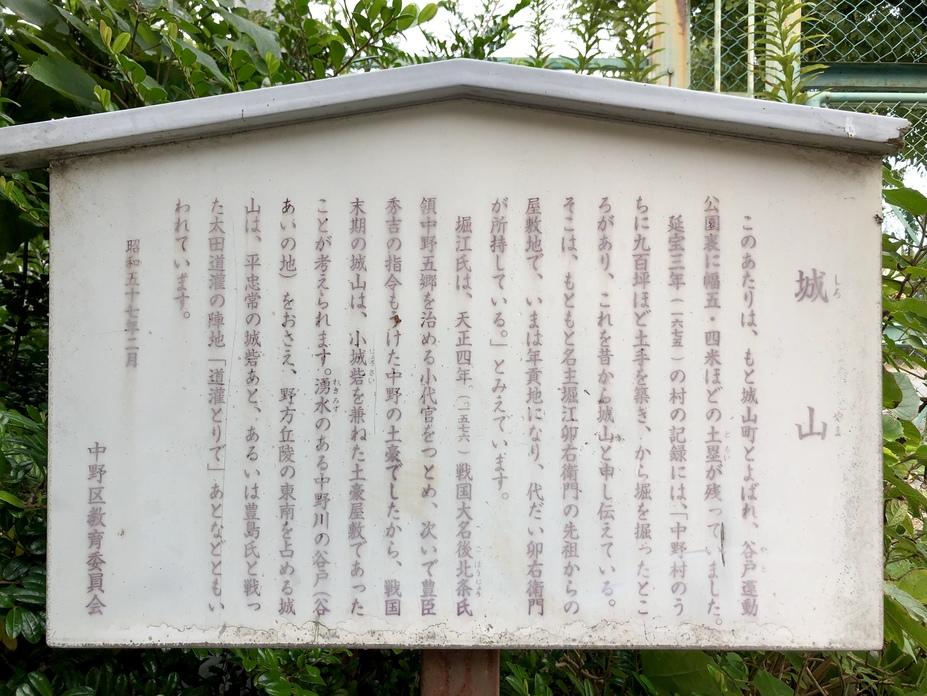 城山
このあたりは、もと城山町とよばれ、谷戸運動
公園裏に幅五・四米ほどの土塁が残っていました。
延宝三年(一六七五)の村の記録には、「中野村のう
ちに九百坪ほど土手を築き、から堀を掘ったとこ
ろがあり、これを昔から城山と申し伝えている。
そこは、もともと名主堀江卯右衛門の先祖からの
屋敷地で、いまは年貢地になり、代だい卯右衛門
が所持している。」とみえています。
堀江氏は、天正四年(一五七六)戦国大名後北条氏
領中野五郷を治める小代官をつとめ、次いで豊臣
秀吉の指令もうけた中野の土豪でしたから、戦国
末期の城山は、小城砦を兼ねた土豪屋敷であった
ことが考えられます。湧水のある中野川の谷戸(谷
あいの地)をおさえ、野方丘陵の東南を占める城
山は、平忠常の城砦あと、あるいは豊島氏と戦っ
た太田道灌の陣地「道灌とりで」あとなどともい
われています。
昭和五十七年二月
中野区教育委員会